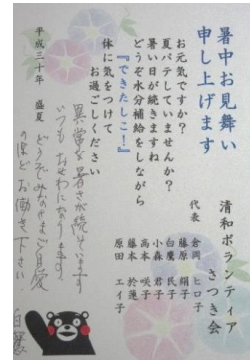 暑中お見舞い
申し上げます
お元気ですか？
夏バテしていませんか？
暑い日が続きますね
どうぞ水分補給をしながら
『できたしこ！』
体に気をつけて
お過ごしください
平成三十年 盛夏
清和ボランティア
さつき会
代表
倉岡 ヒロ子
藤原 絹子
白鷹 民子
小森 君子
高本 咲子
藤本 於蓮
原田 エイ子
異常な暑さが続いています
いつもおせわになります
どうぞみなさまご自愛
のほどお働き下さい